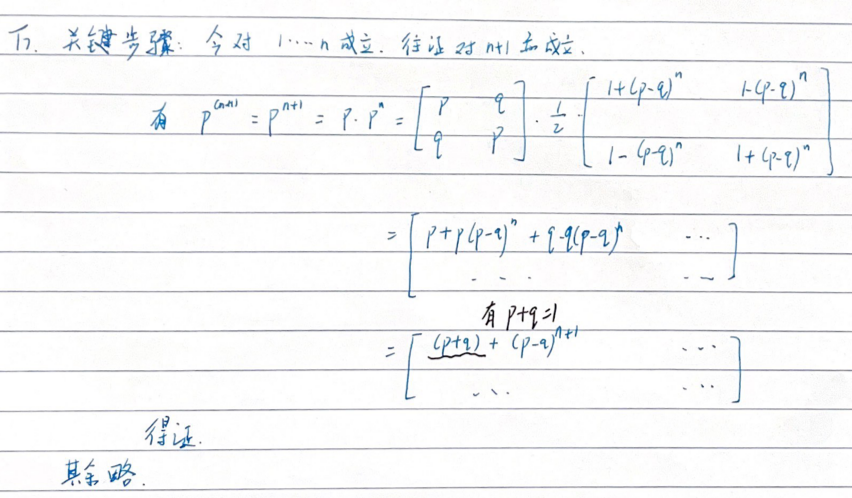 17. 关键步骤: 令对 1……n 成立. 往证对 n+1 也成立.
有 P^{(n+1)} = P^{n+1} = P·P^n = [p q; q p] · 1/2 · [1+(p-q)^n 1-(p-q)^n; 1-(p-q)^n 1+(p-q)^n]
= [p+p(p-q)^n + q-q(p-q)^n ···; ··· ···]
有 p+q=1
= [(p+q) + (p-q)^{n+1} ···; ··· ···]
得证.
其余略.